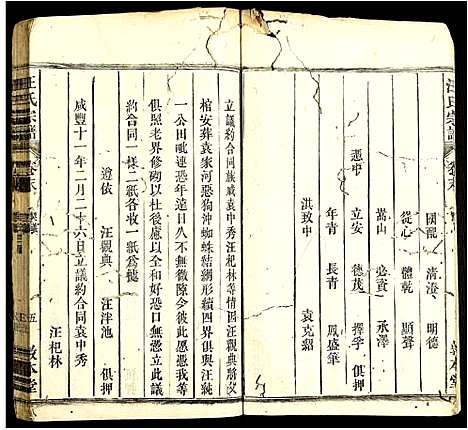 汪氏宗譜
卷末
敦本堂
國龍 清澄 明德
從心 體乾 顯聲
嵩山 必貴 承澤
憑中 立安 德茂 擇季
年青 長青 鳳盛筆
洪致中 袁克紹
立議約合同族戚袁中秀汪杞林等情因汪觀典將父
棺安葬袁家河惡獨沖蜘蛛結網形續四界俱與汪毓
一公田毗連恐年遠日久不無微隙今彼此愿憑我等
俱照老界修砌以杜後慮以全和好恐口無憑立此議
約合同一樣二紙各收一紙爲據
遵依 汪觀典 汪泮池 俱押
咸豐十一年二月二十六日立議約合同袁中秀
汪杞林
汪氏宗譜
卷末
五
敦本堂